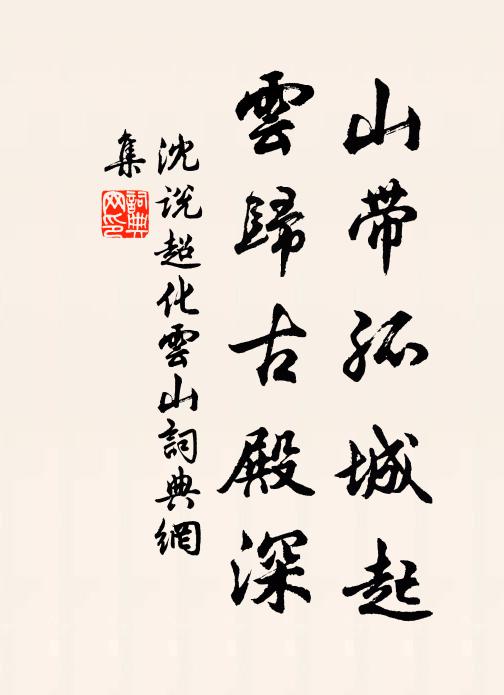 山帶孤城起
雲歸古殿深
沈說超化雲山詞典網
集
詞典
網印